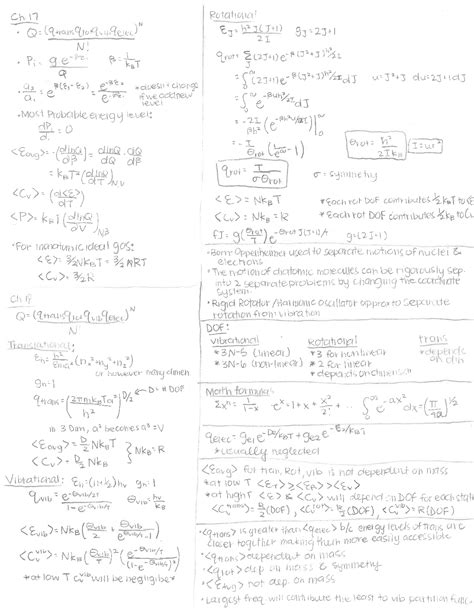 Ch 17
• Q = (qtrans qrot qvib qelec)^N / N!
• Pi = gi e^-βεi / Q    β = 1/kBT
doesn't change
if we add new
level
• Most Probable energy level:
dPi/di = 0
<Eavg> = -(dlnQ/dβ) =
= kBT²(dlnQ/dT)N,V
<Cv> = (d<E>/dT)
<P> = kBT(dlnQ/dV)
• For monatomic ideal gas:
<E> = 3/2 NkBT = 3/2 nRT
<Cv> = 3/2 R
Ch 18
Q = (qtrans qrot qvib qelec)^N
Translational:
(nx² + ny² + nz²)
or however many dimen
gn = 1
qtrans = (2πmkBTa²/h²)^D/2    D = # DOF
in 3 Dim, a³ becomes a³ = V
<Eavg> = D/2 NkBT
<Cv> = D/2 NkB
NkB = R
Vibrational: En = (n+1/2)hν    gn = 1
qvib = e^-Θvib/2T / 1-e^-Θvib/T    Θvib = hν/kB
<Evib> = NkB(Θvib/2 + Θvib/(e^Θvib/T - 1))
<Cv^vib> = NkB(Θvib/T)² (e^-Θvib/T / (1-e^-Θvib/T)²)
*at low T Cv vib will be negligible*
Rotational
EJ = ħ²J(J+1)/2I    gJ = 2J+1
qrot = Σ(2J+1)e^-β(J²+J)ħ²/2I
= ∫0^∞ (2J+1)e^-β(J²+J)ħ²/2I dJ    u = J²+J    du = 2J+1 dJ
= ∫0^∞ e^-βuħ²/2I du
qrot = T/σΘrot    Θrot = ħ²/2IkB    I = μr²
σ = symmetry
<E> = NkBT    *Each rot DOF contributes 1/2 kBT to <E>
<Cv> = NkB = R    *Each rot DOF contributes 1/2 kB to Cv
fJ = g(Θrot/T)e^-Θrot J(J+1)/T    g = (2J+1)
• Born Oppenheimer used to separate motions of nuclei &
electrons
• The motion of diatomic molecules can be rigorously sep
into 2 separate problems by changing the coordinate
system.
• Rigid Rotator/Harmonic Oscillator approx to separate
rotation from vibration
DOF:
Vibrational    Rotational    trans
*3N-5 (linear)    *3 for nonlinear    *depends
*3N-6 (non-linear)    *2 for linear    on dim
*depends on dimension
Math formulas
Σx^n = 1/1-x    e^x = 1+x+x²/2! + ...    ∫0^∞ e^-ax² dx = (π/4a)^1/2
qelec = ge1 e^-De/kBT + ge2 e^-E2/kBT
*usually neglected
<Eavg> for tran, rot, vib is not dependent on mass
*at low T <ET> ≥ <ER> ≥ <Ev>
*at high T <E> & <Cv> will depend on DOF for each state
<Cv^trans> = R/2 (DOF), <Cv^rot> = R/2 (DOF), <Cv^vib> = R(DOF)
• <qtrans> is greater than <qelec> b/c energy levels of trans are
closer together making them more easily accessible
• <qtrans> dependent on mass
• <qrot> dep on mass & symmetry
• <Eavg> not dep. on mass
• Largest freq will contribute the least to vib partition func